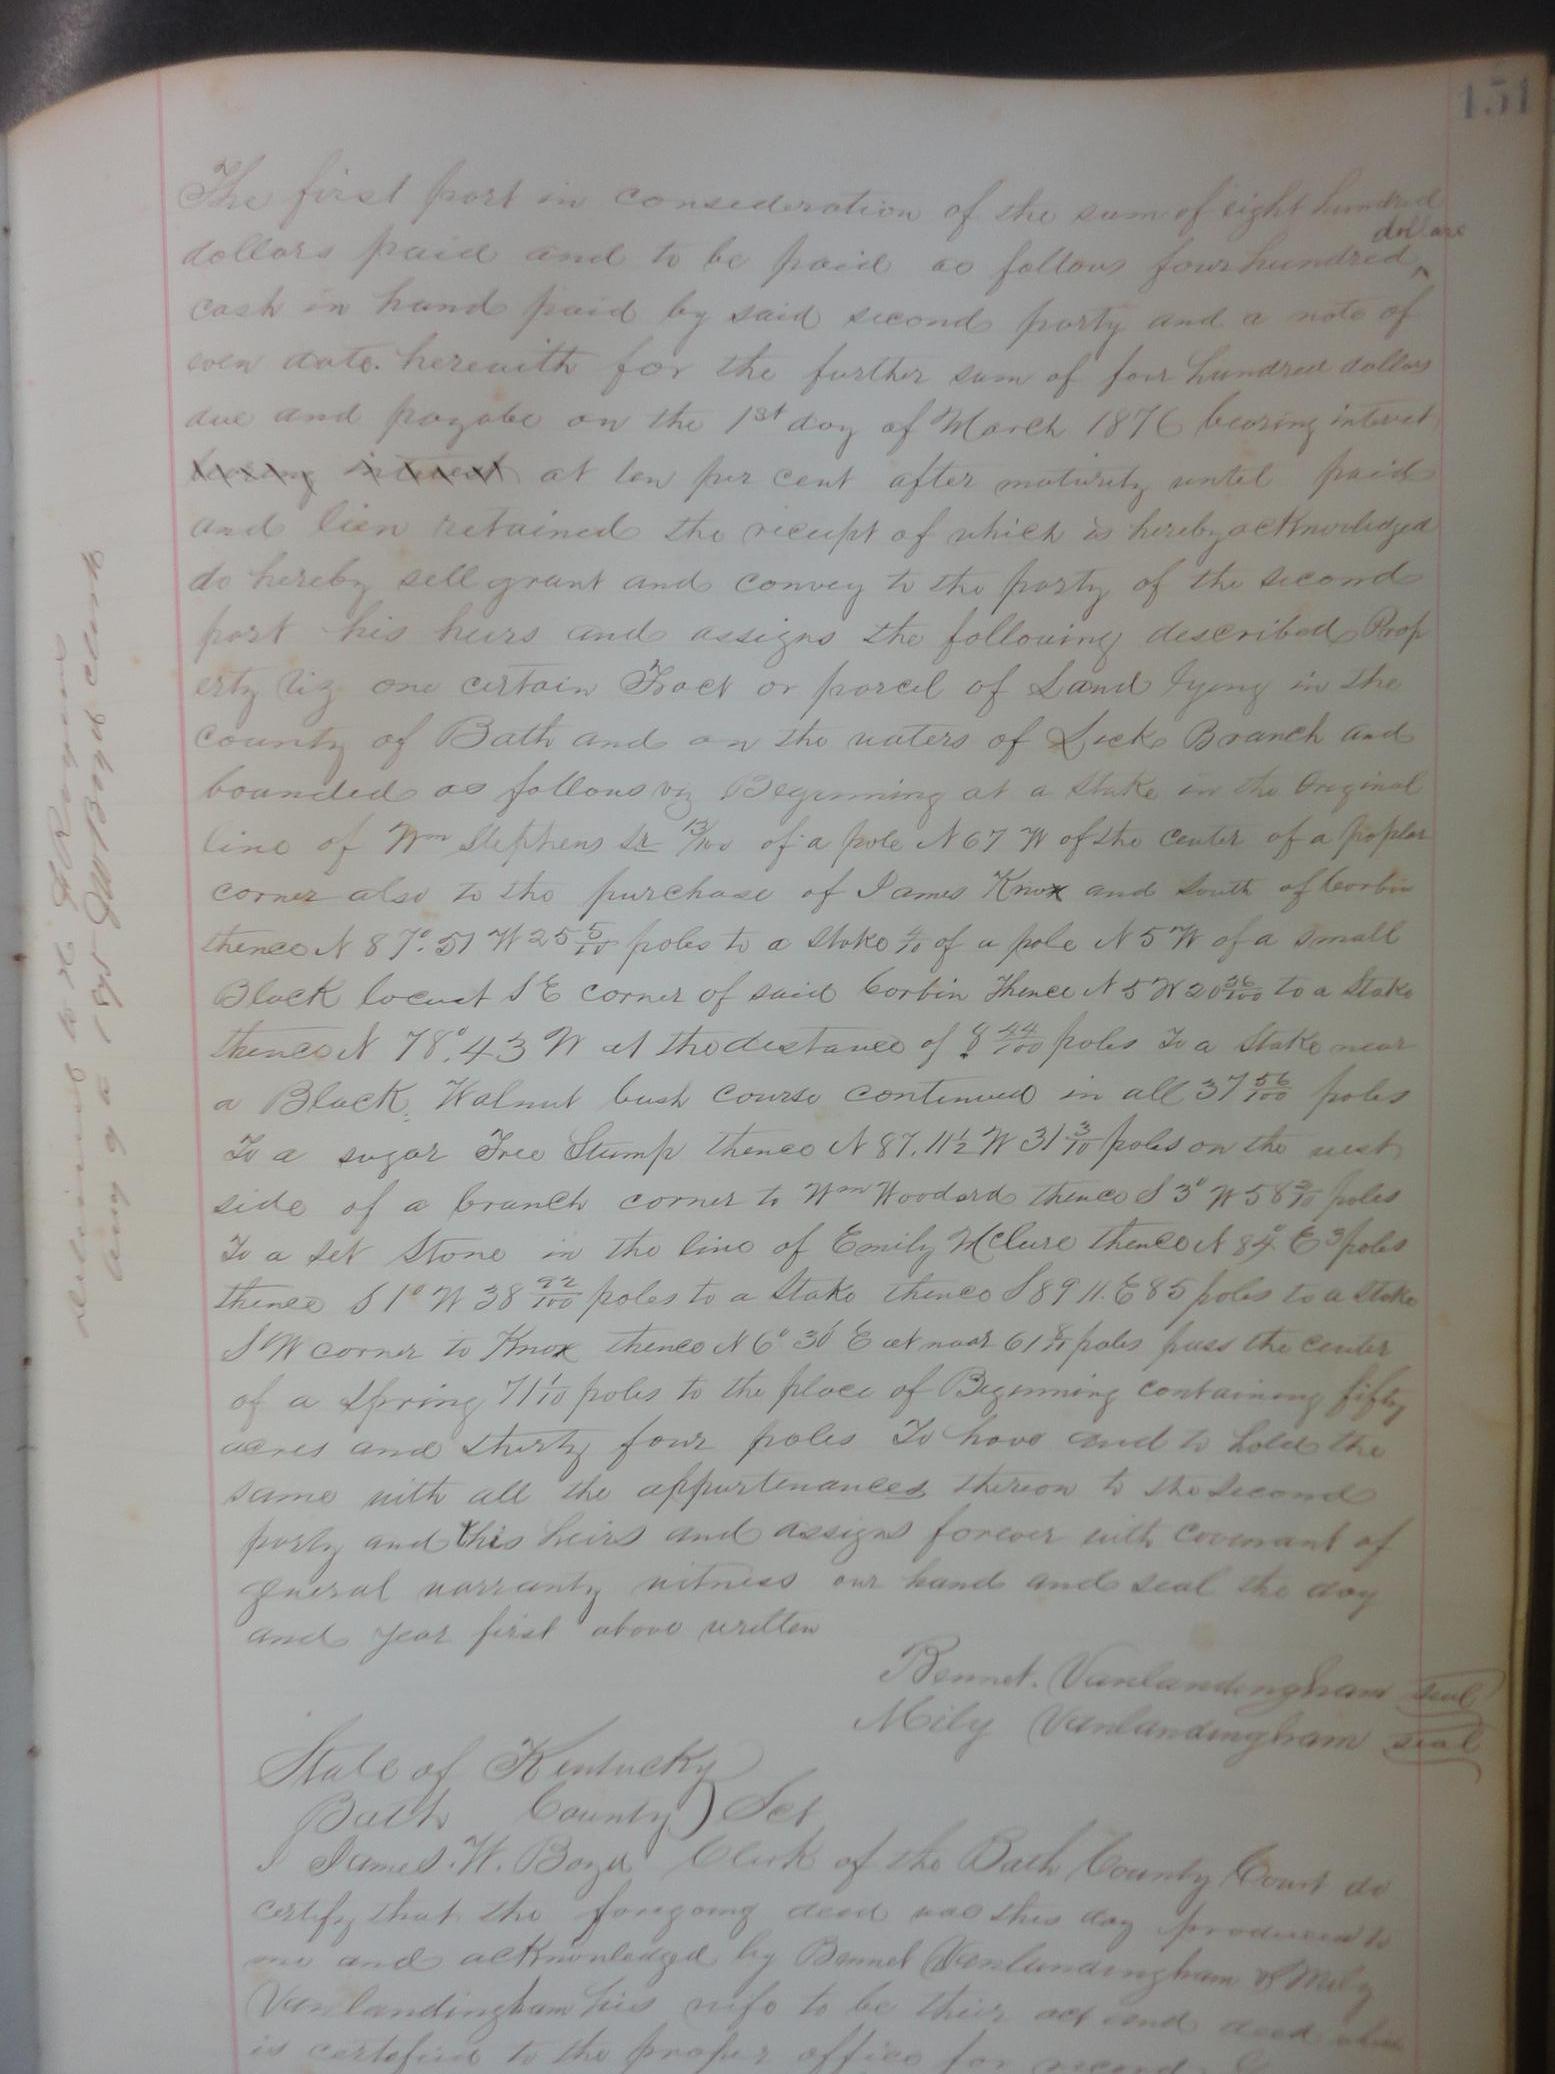 151
The first part in consideration of the sum of eight hundred
dollars paid and to be paid as follows four hundred dollars
cash in hand paid by said second party and a note of
even date. herewith for the further sum of four hundred dollars
due and payabe on the 1st day of March 1876 bearing interest
bearing interest at ten per cent after maturity until paid
and lien retained the receipt of which is hereby acknowledged
do hereby sell grant and convey to the party of the second
part his heirs and assigns the following described Prop
erty Viz one certain Tract or parcel of Land lying in the
county of Bath and on the waters of Lick Branch and
bounded as follows viz Beginning at a Stake in the Original
line of Wm Stephens Sr 13/100 of a pole N 67 W of the center of a poplar
corner also to the purchase of James Knox and South of Corbin
thence N 87°. 51 W 25 5/10 poles to a Stake 4/10 of a pole N 5 W of a small
Black locust S E corner of said Corbin Thence N 5 W 20 26/100 to a Stake
thence N 78°. 43 W at the distance of 8 44/100 poles To a Stake near
a Black Walnut bush course continued in all 37 56/100 poles
To a sugar Tree Stump thence N 87. 11 1/2 W 31 3/10 poles on the west
side of a branch corner to Wm Woodard thence S 3° W 58 3/10 poles
To a set Stone in the line of Emily McClure thence N 84° E 3 poles
thence S 1° W 38 92/100 poles to a Stake thence S 89 11. E 85 poles to a Stake
S W corner to Knox thence N 6° 30' E at near 61 8/10 poles pass the center
of a Spring 71 1/10 poles to the place of Beginning containing fifty
acres and thirty four poles To have and to hold the
same with all the appurtenances thereon to the second
party and this heirs and assigns forever with covenant of
general warranty witness our hand and seal the day
and year first above written
Bennet. Vanlandingham seal
Mily Vanlandingham seal
State of Kentucky
Bath County) Sct
I James. W. Boyd Clerk of the Bath County Court do
certify that the foregoing deed was this day produced to
me and acknowledged by Bennet Vanlandingham & Mily
Vanlandingham his wife to be their act and deed
is certified to the proper office for record
delivered to
Aug 9 1875 JW Boyd clerk